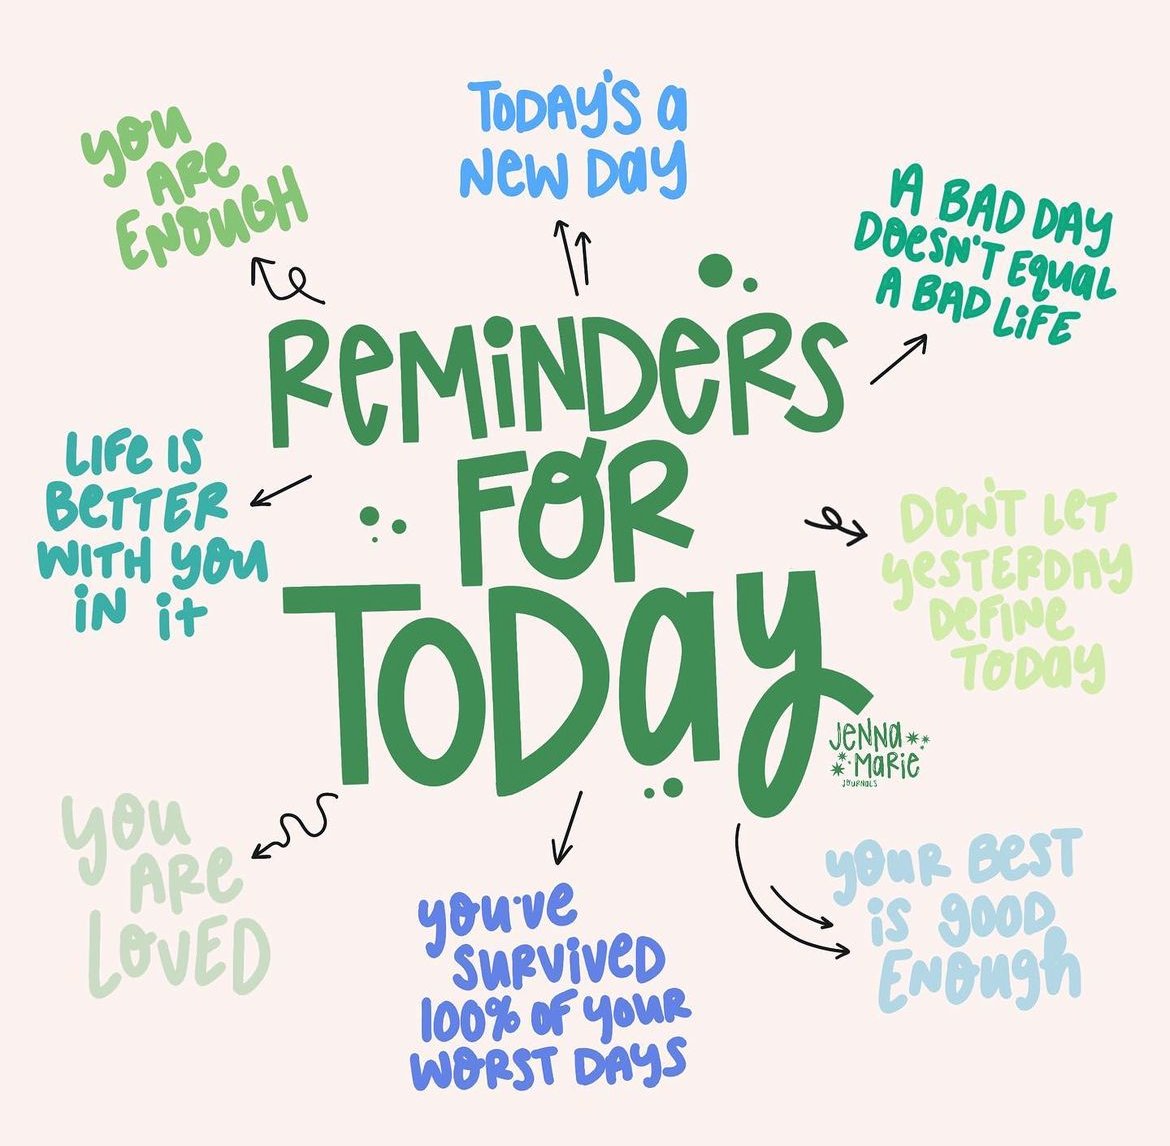 TODAY'S A
NEW DAY
YOU
ARE
ENOUGH
A BAD DAY
DOESN'T EQUAL
A BAD LIFE
REMINDERS
FOR
TODAY
LIFE IS
BETTER
WITH YOU
IN it
DON'T LET
YESTERDAY
DEFINE
TODAY
JENNA
MARIE
JOURNALS
YOU
ARE
LOVED
YOU'VE
SURVIVED
100% OF YOUR
WORST DAYS
YOUR BEST
is good
ENOUGh